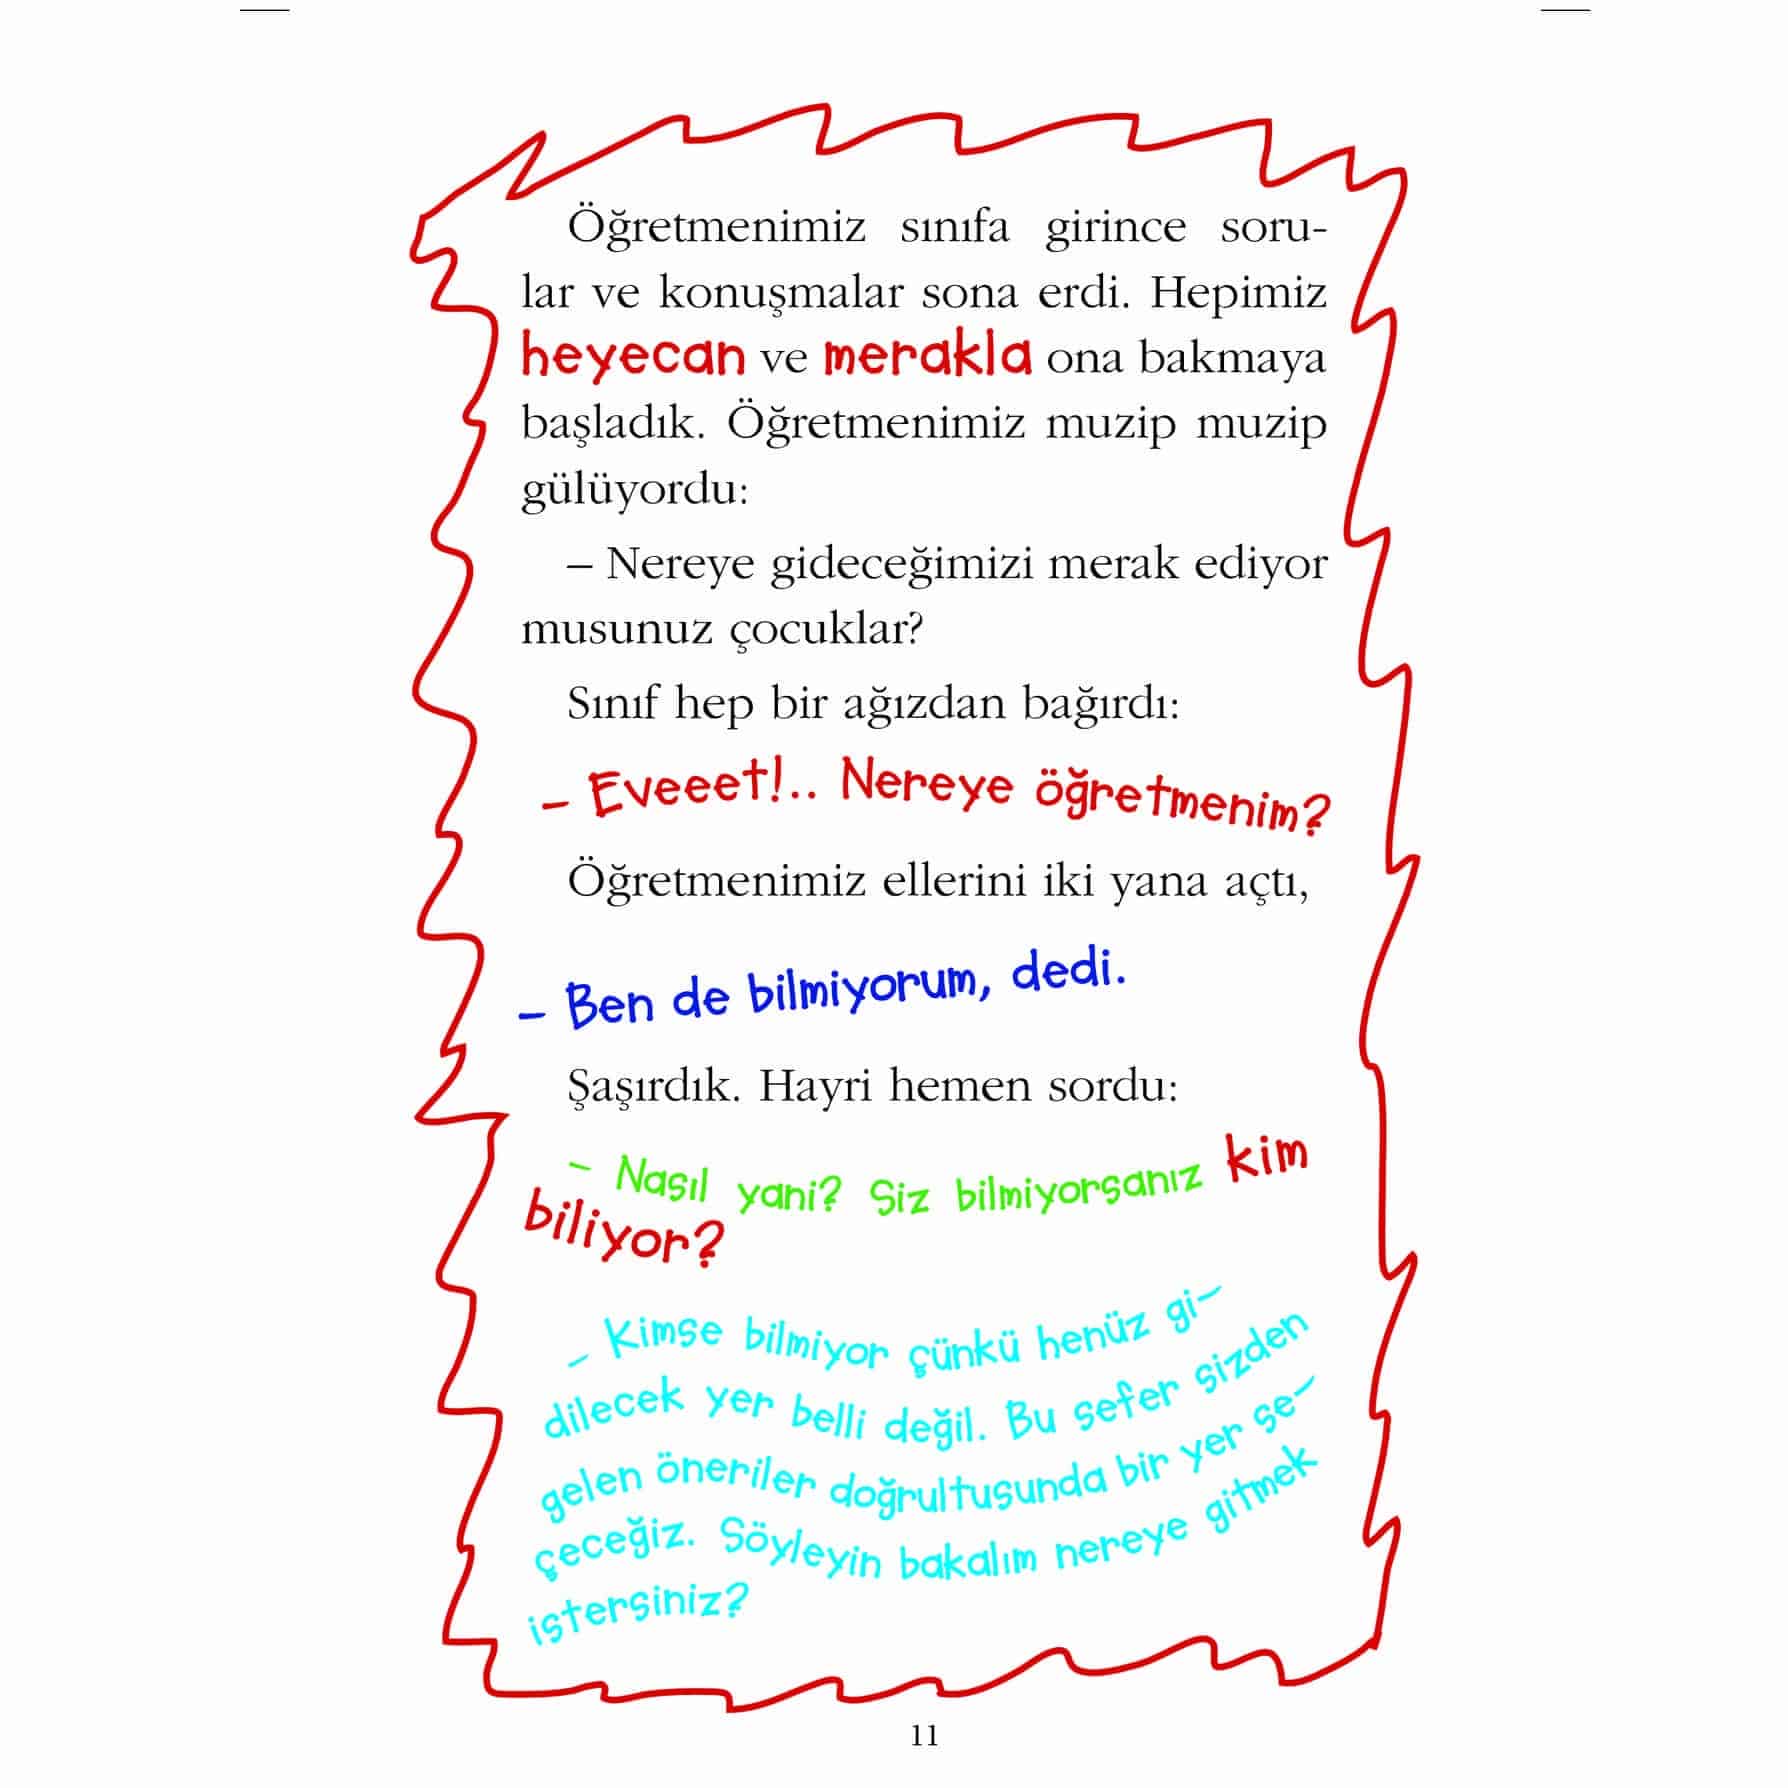 Öğretmenimiz sınıfa girince soru-
lar ve konuşmalar sona erdi. Hepimiz
heyecan ve merakla ona bakmaya
başladık. Öğretmenimiz muzip muzip
gülüyordu:
– Nereye gideceğimizi merak ediyor
musunuz çocuklar?
Sınıf hep bir ağızdan bağırdı:
– Eveeet!.. Nereye öğretmenim?
Öğretmenimiz ellerini iki yana açtı,
– Ben de bilmiyorum, dedi.
Şaşırdık. Hayri hemen sordu:
– Nasıl yani? Siz bilmiyorsanız kim
biliyor?
– Kimse bilmiyor çünkü henüz gi-
dilecek yer belli değil. Bu sefer sizden
gelen öneriler doğrultusunda bir yer se-
çeceğiz. Söyleyin bakalım nereye gitmek
istersiniz?
11